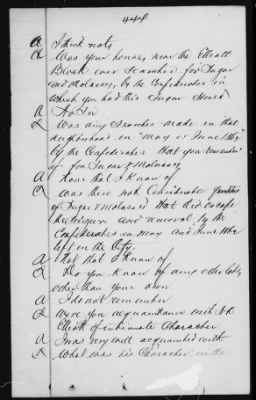 448
A I think not
Q Was your house, near the Elliott
Block ever searched for Sugar
and Molasses, by the Confederates in
which you had this Sugar Stored
A No Sir
Q Was any Searches made in that
neighborhood in May or June 1862
by the Confederates that you remember
of for Sugar & Molasses
A None that I know of
Q Was there not Considerable quantities
of Sugar & Molasses that did escape
the and removal, by the
Confederates in May and June 1862
left in the City.
A Not that I know of
Q Do you know of any other lots,
other than your own
A I do not remember
Q Were you acquaintance with
Elliott of intimate Character
A I was very well acquainted with
Q What was his Character, in the